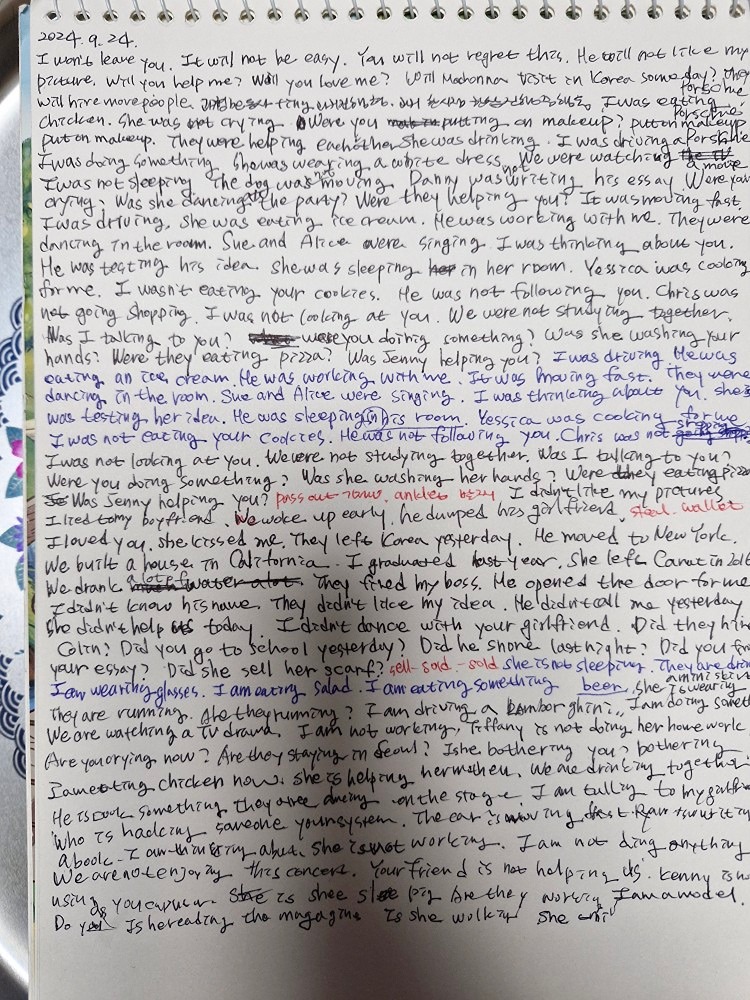 2024. 9. 24.
I won't leave you. It will not be easy. You will not regret this. He will not like my
picture. Will you help me? Will you love me? Will Madonna visit in Korea someday? They
will hire more people. I was eating
chicken. She was not crying. Were you putting on makeup? put on makeup
porsche
put on makeup. They were helping each other. She was drinking. I was driving a Porsche
I was doing something. She was wearing a white dress. We were watching a movie
I was not sleeping. The dog was not moving. Danny was not writing his essay. Were you
crying? Was she dancing at the party? Were they helping you? It was moving fast.
I was driving. She was eating ice cream. He was working with me. They were
dancing in the room. Sue and Alice were singing. I was thinking about you.
He was testing his idea. She was sleeping in her room. Yessica was cooking
for me. I wasn't eating your cookies. He was not following you. Chris was
not going shopping. I was not looking at you. We were not studying together.
Was I talking to you? were you doing something? Was she washing your
hands? Were they eating pizza? Was Jenny helping you? I was driving. He was
eating an ice cream. He was working with me. It was moving fast. They were
dancing in the room. Sue and Alice were singing. I was thinking about you. she
was testing her idea. He was sleeping in his room. Yessica was cooking for me
I was not eating your cookies. He was not following you. Chris was not going shopping
I was not looking at you. We were not studying together. Was I talking to you?
Were you doing something? Was she washing her hands? Were they eating pizza
Was Jenny helping you? pass out ankle I didn't like my pictures
I lied to my boyfriend. We woke up early. he dumped his girlfriend. steal. wallet
I loved you. she kissed me. They left Korea yesterday. He moved to New York.
We built a house in California. I graduated last year. She left in 2016
We drank a lot of water. They fired my boss. He opened the door for me
I didn't know his name. They didn't like my idea. He didn't call me yesterday
She didn't help us today. I didn't dance with your girlfriend. Did they hire
Colin? Did you go to school yesterday? Did he snore last night? Did you
your essay? Did she sell her scarf? sell-sold-sold she is not sleeping. They are
I am wearing glasses. I am eating salad. I am eating something been. she is wearing a mini skirt
They are running. Are they running? I am driving a Lamborghini. I am doing
We are watching a TV drama. I am not working. Tiffany is not doing her homework
Are you crying now? Are they staying in Seoul? Is he bothering you? bothering
I am eating chicken now. She is helping her We are drinking together
He is something. they are dancing on the stage. I am talking to my
Who is hacking someone your system. The car is moving fast. Ryan
a book. I am thinking about. She is not working. I am not ding anything
We are not enjoying this concert. Your friend is not helping us. Kenny is
using you is she Are they working I am a model.
Do you Is he reading the magazine is she she